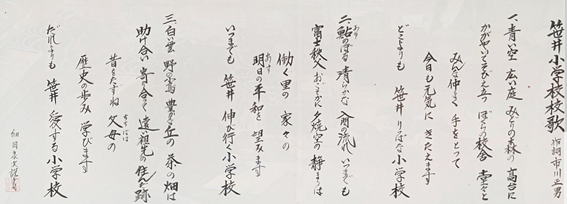 笹井小学校校歌
作詞 市川正男
一、青い空 広い庭 みどりの森の 高台に
かがやいてそびえ立つ ぼくらの校舎 堂々と
みんな仲よく 手をとって
今日も元気に きたえます
どこよりも 笹井 りっぱな 小学校
二、鮎のぼる 清らかな 入間の流れ いつまでも
富士秩父 おごそかに 夕焼空の 静まりは
働く里の 家々の
明日の平和を 望みます
いつまでも 笹井 伸び行く 小学校
三、白い雲 野の富 豊かな丘の 茶の畑は
助け合い 寄り合って 遠い祖先の 住んだ跡
昔をたずね 父母の
歴史の歩み 学びます
だれよりも 笹井 愛する 小学校